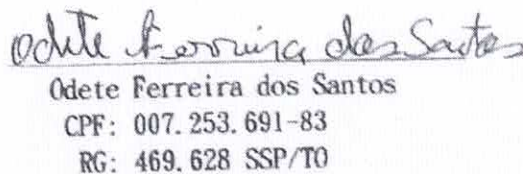 Odete Ferreira dos Santos
Odete Ferreira dos Santos
CPF: 007.253.691-83
RG: 469.628 SSP/TO